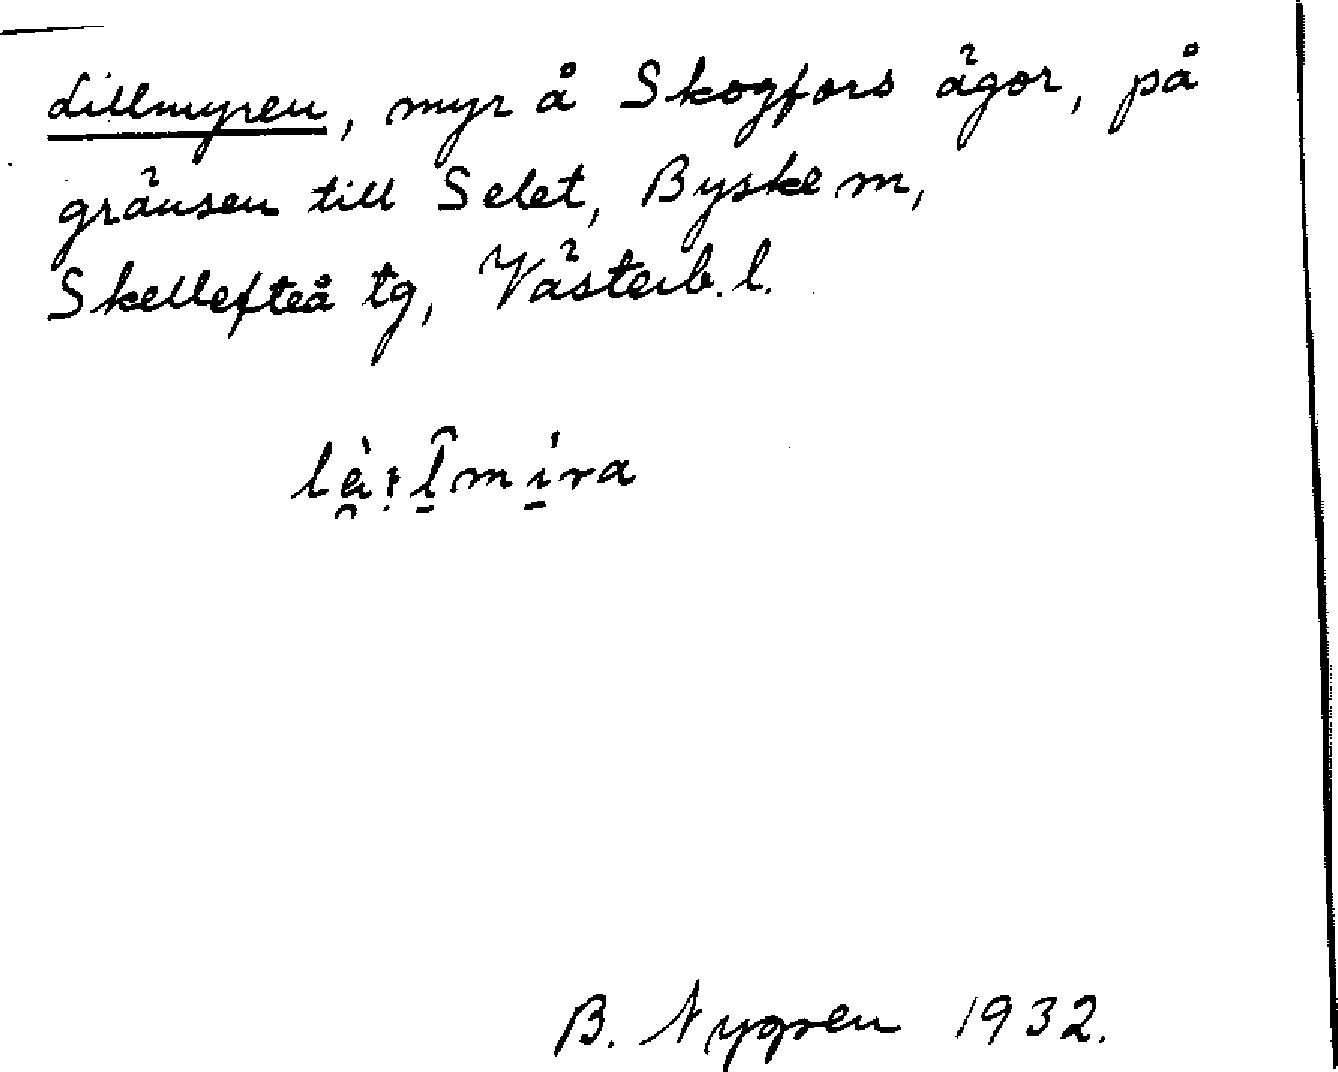 Lillmyren, myr å Skogfors ägor, på
gränsen till Selet, Byske m,
Skellefteå tg, Västerb. l.
B. Nygren 1932.